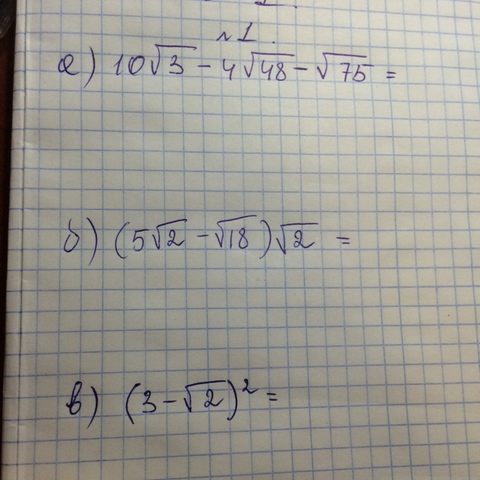 №1.
а) 10√3 - 4√48 - √75 =
б) (5√2 - √18)√2 =
в) (3 - √2)² =